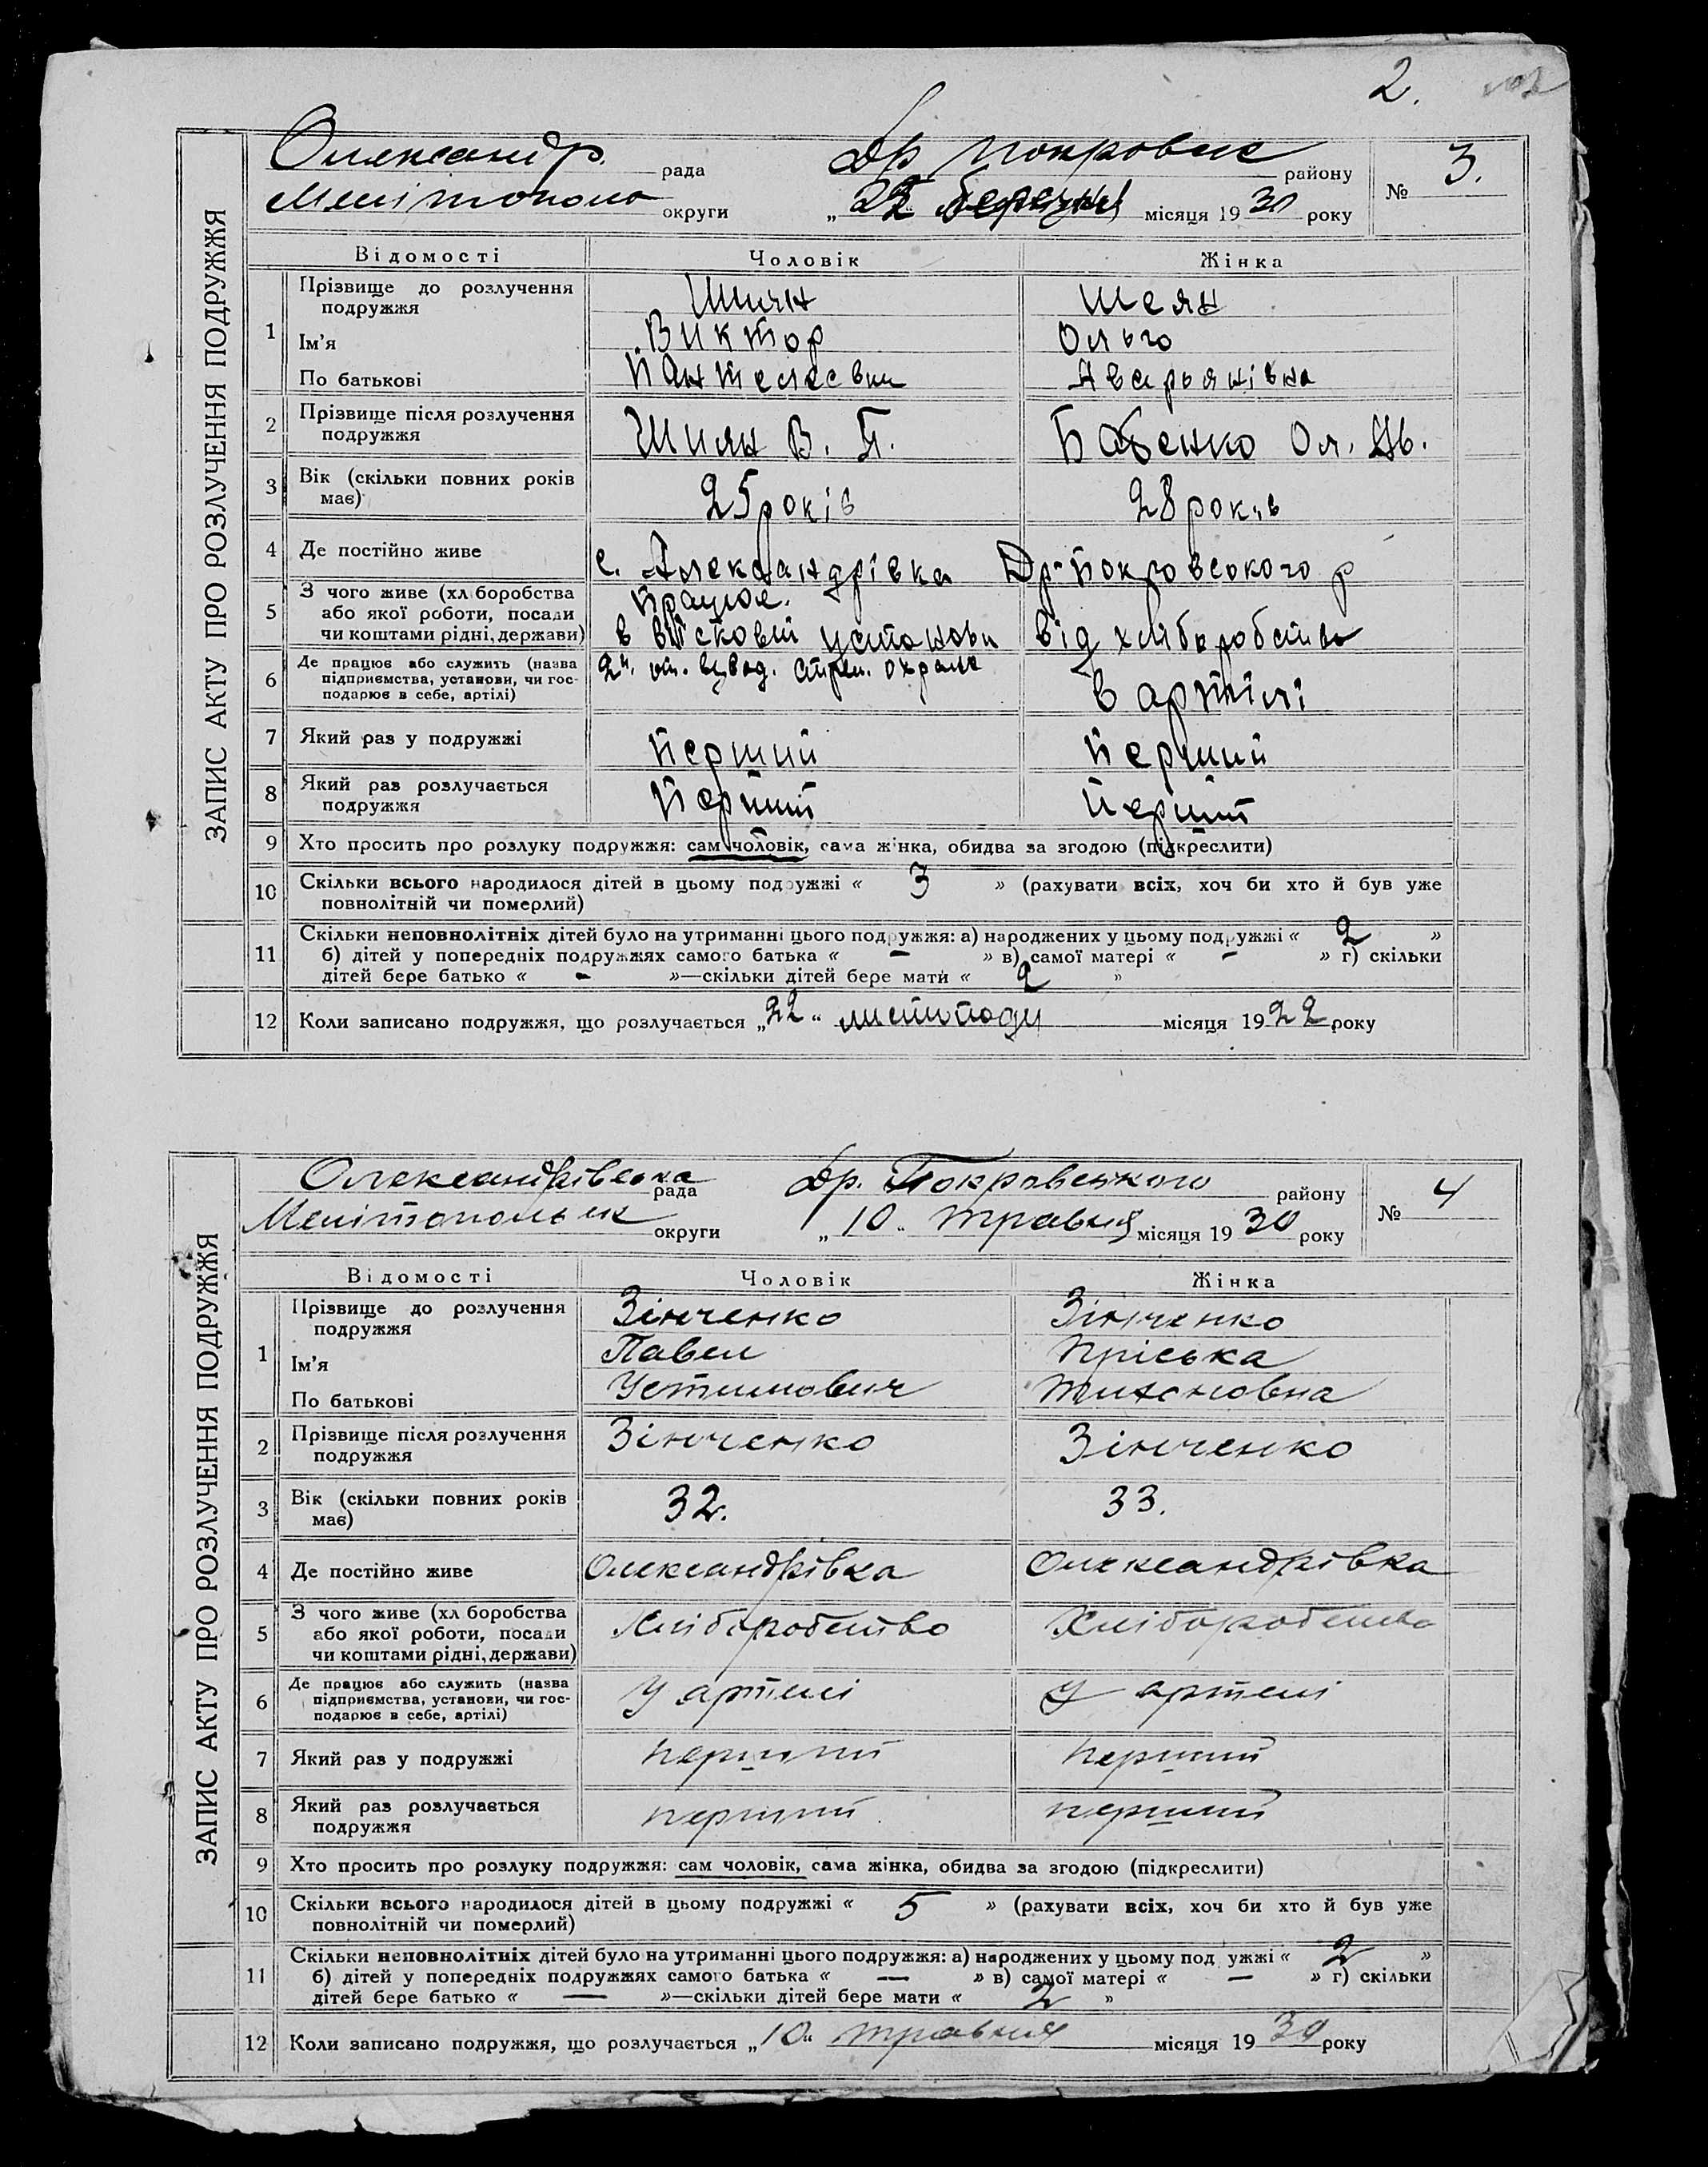 2.
ЗАПИС АКТУ ПРО РОЗЛУЧЕННЯ ПОДРУЖЖЯ
Олександр. рада Др Покровськ району № 3.
Мелітополь округи „22“ березня місяця 1930 року
Відомості Чоловік Жінка
1 Прізвище до розлучення подружжя Шиян Шеян
Ім'я Виктор Ольго
По батькові Пантелеевич Аверьянівна
2 Прізвище після розлучення
подружжя Шиян В. П. Бабенко Ол. Ав.
3 Вік (скільки повних років
має) 25 років 28 років
4 Де постійно живе с. Александрівка Др-Покровського р
5 З чого живе (хліборобства
або якої роботи, посади Працює.
чи коштами рідні, держави) в вісковій установи від хліборобства
6 Де працює або служить (назва 2й. от. взвод. стрел. охрана
підприємства, установи, чи гос-
подарює в себе, артілі) в артілі
7 Який раз у подружжі Перший Перший
8 Який раз розлучається
подружжя Перший Перший
9 Хто просить про розлуку подружжя: сам чоловік, сама жінка, обидва за згодою (підкреслити)
10 Скільки всього народилося дітей в цьому подружжі « 3 » (рахувати всіх, хоч би хто й був уже
повнолітній чи померлий)
11 Скільки неповнолітніх дітей було на утриманні цього подружжя: а) народжених у цьому подружжі « 2 »
б) дітей у попередніх подружжях самого батька « — » в) самої матері « — » г) скільки
дітей бере батько « - »—скільки дітей бере мати « 2 »
12 Коли записано подружжя, що розлучається „22“ листопада місяця 1922 року
ЗАПИС АКТУ ПРО РОЗЛУЧЕННЯ ПОДРУЖЖЯ
Олександрівська рада Др. Покровського району № 4
Мелітопольськ округи „10“ травня місяця 1930 року
Відомості Чоловік Жінка
1 Прізвище до розлучення Зінченко Зінченко
подружжя
Ім'я Павел Пріська
По батькові Устимович Тихоновна
2 Прізвище після розлучення Зінченко Зінченко
подружжя
3 Вік (скільки повних років 32. 33.
має)
4 Де постійно живе Олександрівка Олександрівка
5 З чого живе (хліборобства
або якої роботи, посади Хліборобство Хліборобство
чи коштами рідні, держави)
6 Де працює або служить (назва
підприємства, установи, чи гос- У артелі У артелі
подарює в себе, артілі)
7 Який раз у подружжі перший перший
8 Який раз розлучається перший перший
подружжя
9 Хто просить про розлуку подружжя: сам чоловік, сама жінка, обидва за згодою (підкреслити)
10 Скільки всього народилося дітей в цьому подружжі « 5 » (рахувати всіх, хоч би хто й був уже
повнолітній чи померлий)
11 Скільки неповнолітніх дітей було на утриманні цього подружжя: а) народжених у цьому подружжі « 2 »
б) дітей у попередніх подружжях самого батька « — » в) самої матері « — » г) скільки
дітей бере батько « — »—скільки дітей бере мати « 2 »
12 Коли записано подружжя, що розлучається „10“ травня місяця 1930 року